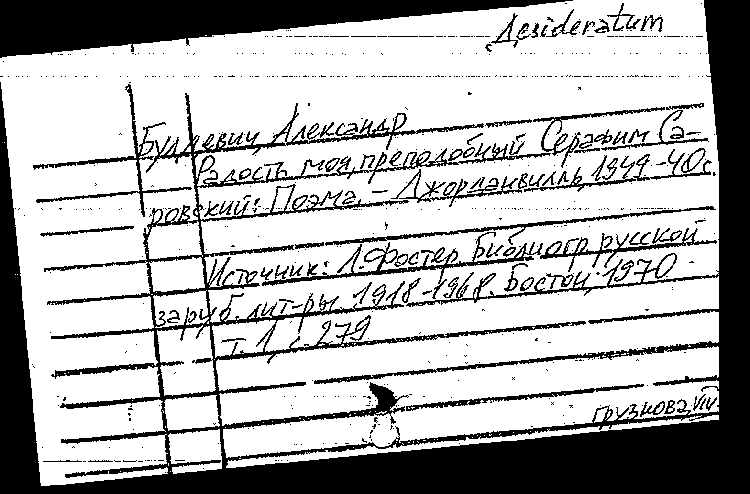 Desideratum
Булдевич, Александр
Радость моя, преподобный Серафим Са-
ровский: Поэма. – Джорданвилль, 1949 – 40с.
Источник: Л. Фостер. Библиогр. русской
заруб. лит-ры. 1918-1968. Бостон, 1970
т. 1, с. 279
грузнова, VIII